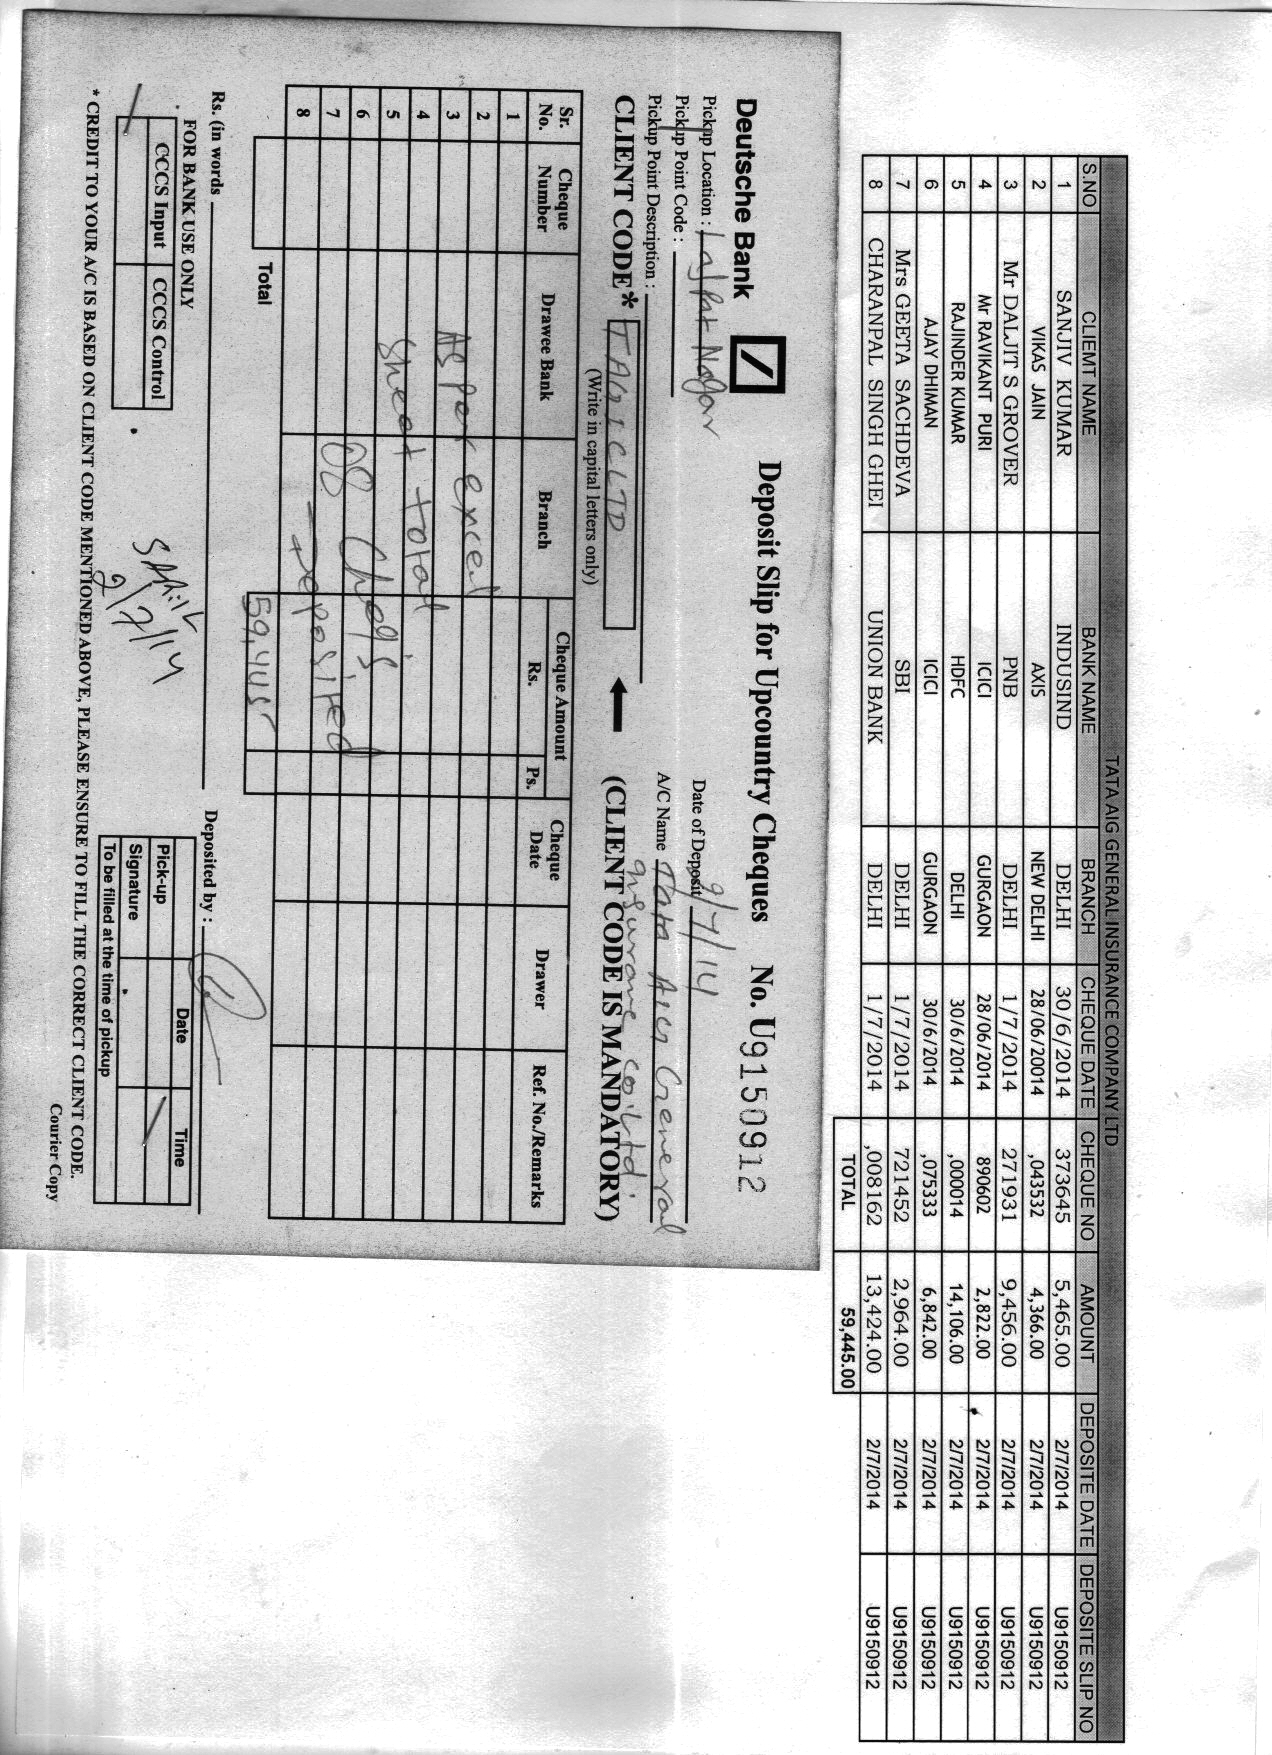 TATA AIG GENERAL INSURANCE COMPANY LTD
S.NO CLIEMT NAME BANK NAME BRANCH CHEQUE DATE CHEQUE NO AMOUNT DEPOSITE DATE DEPOSITE SLIP NO
1 SANJIV KUMAR INDUSIND DELHI 30/6/2014 373645 5,465.00 2/7/2014 U9150912
2 VIKAS JAIN AXIS NEW DELHI 28/06/20014 ,043532 4,366.00 2/7/2014 U9150912
3 Mr DALJIT S GROVER PNB DELHI 1/7/2014 271931 9,456.00 2/7/2014 U9150912
4 Mr RAVIKANT PURI ICICI GURGAON 28/06/2014 890602 2,822.00 2/7/2014 U9150912
5 RAJINDER KUMAR HDFC DELHI 30/6/2014 ,000014 14,106.00 2/7/2014 U9150912
6 AJAY DHIMAN ICICI GURGAON 30/6/2014 ,075333 6,842.00 2/7/2014 U9150912
7 Mrs GEETA SACHDEVA SBI DELHI 1/7/2014 721452 2,964.00 2/7/2014 U9150912
8 CHARANPAL SINGH GHEI UNION BANK DELHI 1/7/2014 ,008162 13,424.00 2/7/2014 U9150912
TOTAL 59,445.00
Deutsche Bank Deposit Slip for Upcountry Cheques No. U9150912
Pickup Location : Lajpat Nagar Date of Deposit 2/7/14
Pickup Point Code :
Pickup Point Description : A/C Name Tata AIG General
Insurance co. ltd.
CLIENT CODE* TAGICLTD (CLIENT CODE IS MANDATORY)
(Write in capital letters only)
Sr. No. Cheque Number Drawee Bank Branch Cheque Amount Rs. Ps. Cheque Date Drawer Ref. No./Remarks
1
2
3 As per excel
4
5 sheet total
6
7 08 Cheq's
8 deposited
Total 59,445
Rs. (in words Deposited by :
FOR BANK USE ONLY
CCCS Input CCCS Control
2/7/14
Date Time
Pick-up
Signature
To be filled at the time of pickup
* CREDIT TO YOUR A/C IS BASED ON CLIENT CODE MENTIONED ABOVE, PLEASE ENSURE TO FILL THE CORRECT CLIENT CODE.
Courier Copy